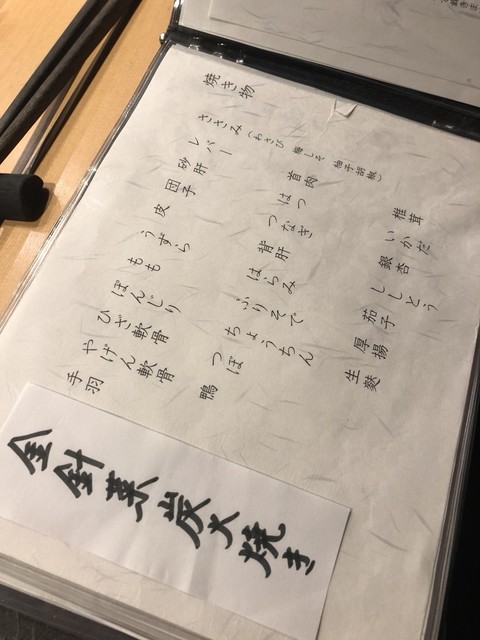 焼き物
ささみ(わさび 梅しそ 柚子胡椒)
レバー
砂肝
団子
皮
うずら
もも
ぼんじり
ひざ軟骨
やげん軟骨
手羽
首肉
はつ
つなぎ
背肝
はらみ
ふりそで
ちょうちん
つぼ
鴨
椎茸
いかだ
銀杏
ししとう
茄子
厚揚
生麩
炭火焼き